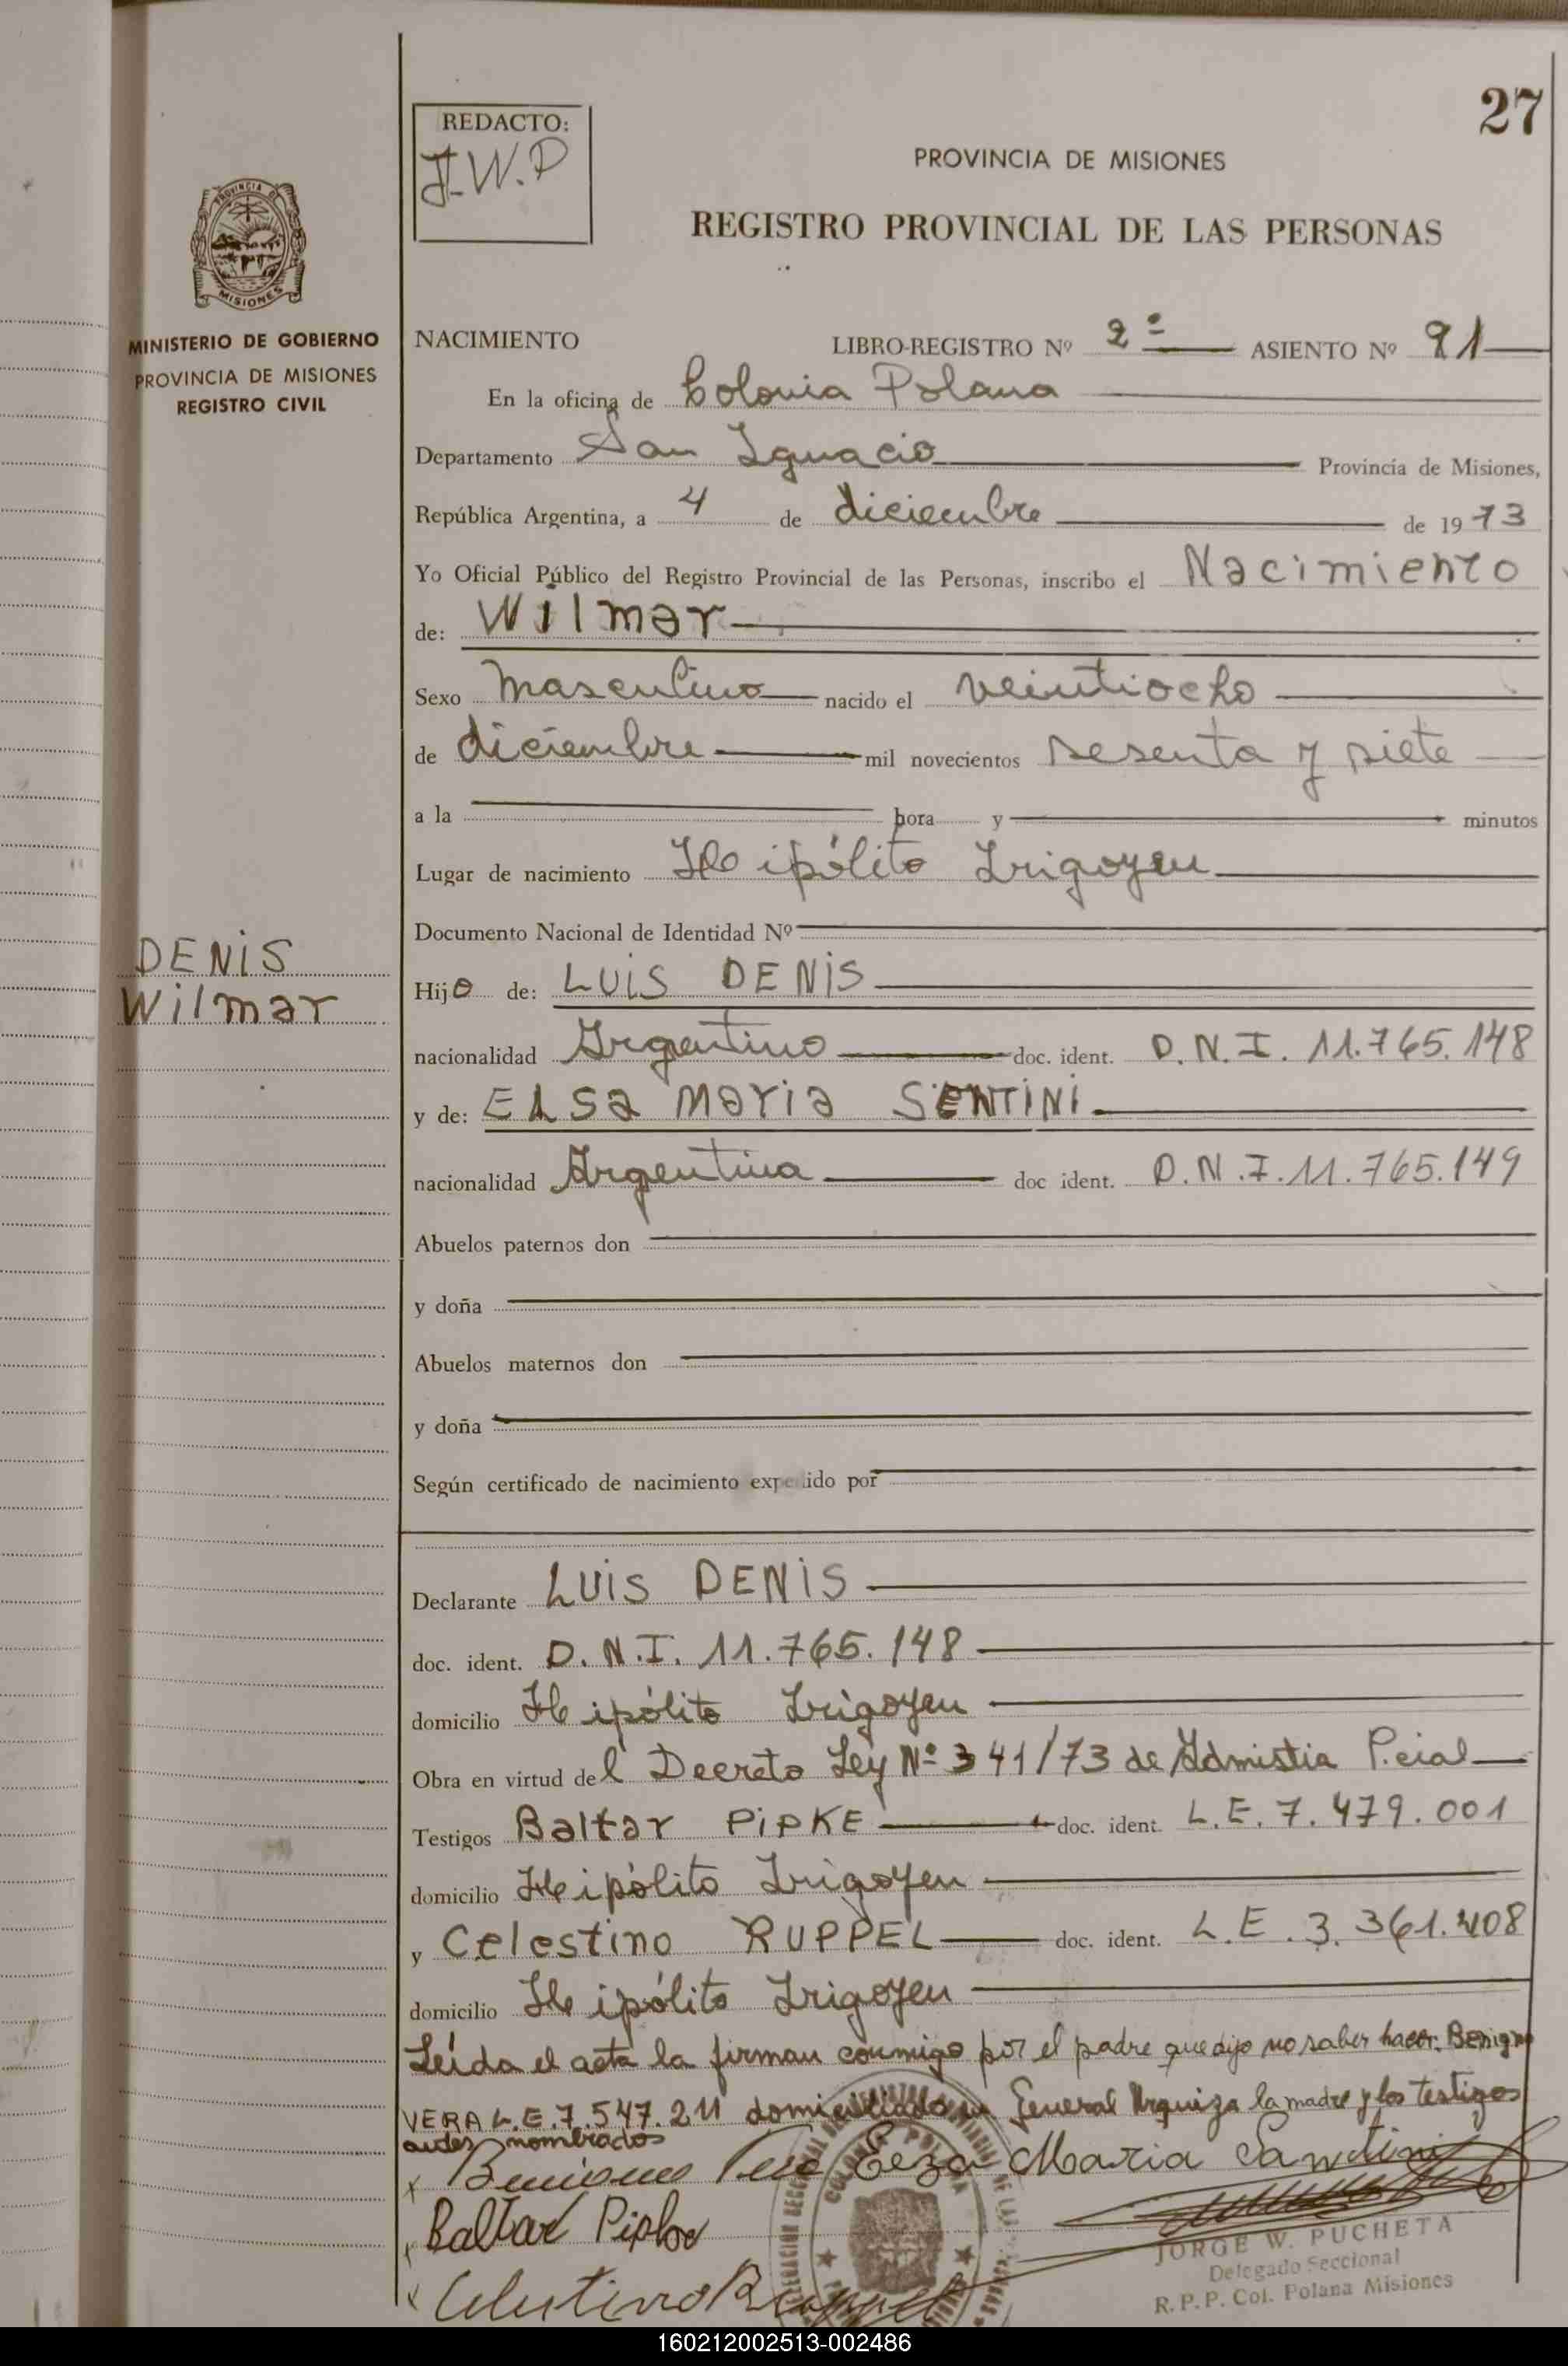 27
REDACTO:
J.W.P
PROVINCIA DE MISIONES
REGISTRO PROVINCIAL DE LAS PERSONAS
PROVINCIA DE
MISIONES
MINISTERIO DE GOBIERNO
PROVINCIA DE MISIONES
REGISTRO CIVIL
NACIMIENTO LIBRO-REGISTRO Nº 2º ASIENTO Nº 91
En la oficina de Colonia Polana
Departamento San Ignacio Provincia de Misiones,
República Argentina, a 4 de diciembre de 1973
Yo Oficial Público del Registro Provincial de las Personas, inscribo el Nacimiento
de: Wilmar
Sexo masculino nacido el veintiocho
de diciembre mil novecientos sesenta y siete
a la hora y minutos
Lugar de nacimiento Hipólito Irigoyen
Documento Nacional de Identidad Nº
DENIS
Wilmar
Hijo de: LUIS DENIS
nacionalidad Argentino doc. ident. D.N.I. 11.765.148
y de: ELSA MARIA SENTINI
nacionalidad Argentina doc ident. D.N.I. 11.765.149
Abuelos paternos don
y doña
Abuelos maternos don
y doña
Según certificado de nacimiento expedido por
Declarante LUIS DENIS
doc. ident. D.N.I. 11.765.148
domicilio Hipólito Irigoyen
Obra en virtud del Decreto Ley Nº 341/73 de Admistia P.cial
Testigos Baltar PIPKE doc. ident. L.E. 7.479.001
domicilio Hipólito Irigoyen
y Celestino RUPPEL doc. ident. L.E. 3.361.408
domicilio Hipólito Irigoyen
Leída el acta la firman conmigo por el padre que dijo no saber hacer. Benigno
VERA L.E. 7.547.211 domiciliado en General Urquiza la madre y los testigos
antes nombrados
x Benigno Vera Elza Maria Santini
x Baltar Pipke
x Celestino Ruppel
JORGE W. PUCHETA
Delegado Seccional
R.P.P. Col. Polana Misiones
160212002513-002486